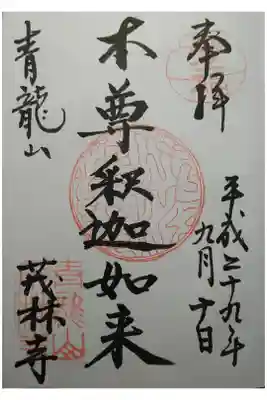 奉拝
平成二十九年
九月十日
本尊釈迦如来
青龍山
茂林寺